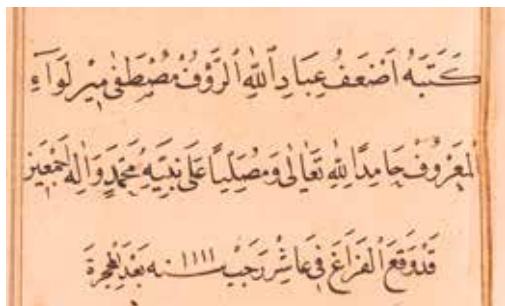 كَتَبَهُ اَضْعَفُ عِبَادِ اللّٰهِ الرَّؤُفْ مُصْطَفٰى مِيْرِ لَوَٓاءِ
الْمَعْرُوفْ حَامِدًا لِلّٰهِ تَعَالٰى وَمُصَلِّيًا عَلٰى نَبِيِّهِ مُحَمَّدٍ وَاٰلِهِ اَجْمَعِينَ
قَدْ وَقَعَ الْفَرَاغْ فِى عَاشِرِ رَجَبْ سنه ١١١١ بَعْدَ الْهِجْرَةِ